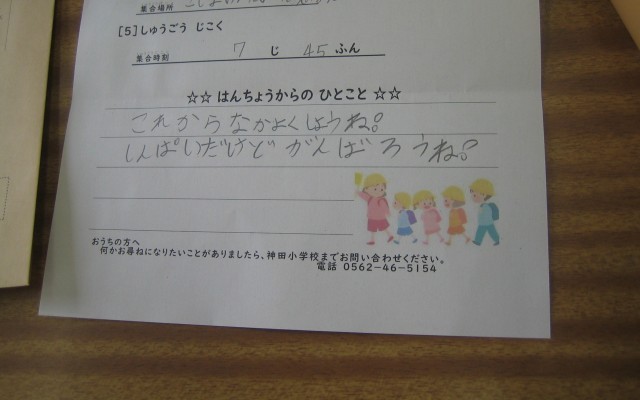 集合場所
[5]しゅうごう じこく
集合時刻 7 じ 45 ふん
☆☆ はんちょうからの ひとこと ☆☆
これからなかよくしようね。
しんぱいだけど がんばろうね。
おうちの方へ
何かお尋ねになりたいことがありましたら、神田小学校までお問い合わせください。
電話 0562-46-5154